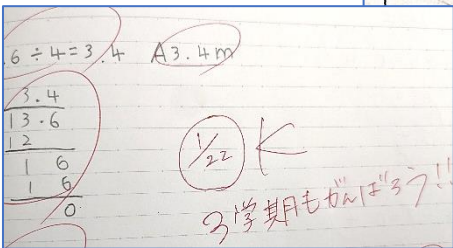 .6÷4=3.4 A3.4m
3.4
13.6
12
1 6
1 6
0
1/22 K
3学期もがんばろう!!